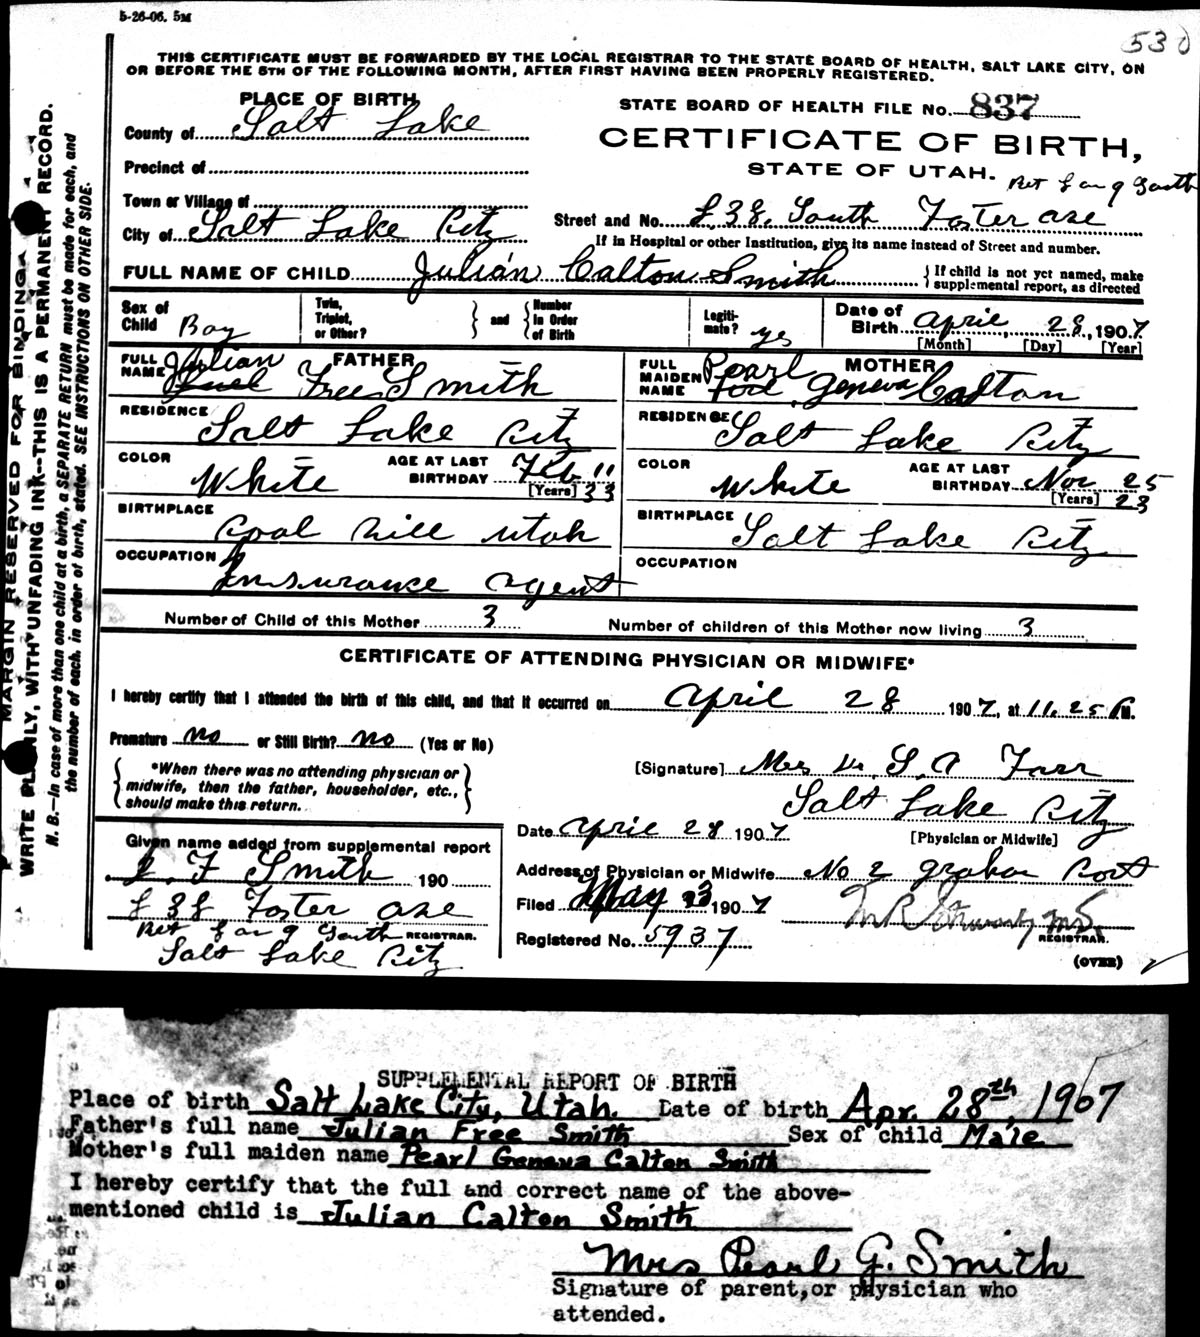 5-26-06. 5M
530
THIS CERTIFICATE MUST BE FORWARDED BY THE LOCAL REGISTRAR TO THE STATE BOARD OF HEALTH, SALT LAKE CITY, ON
OR BEFORE THE 5TH OF THE FOLLOWING MONTH, AFTER FIRST HAVING BEEN PROPERLY REGISTERED.
MARGIN RESERVED FOR BINDING
WRITE PLAINLY, WITH UNFADING INK--THIS IS A PERMANENT RECORD.
N. B.—In case of more than one child at a birth, a SEPARATE RETURN must be made for each, and
the number of each, in order of birth, stated. SEE INSTRUCTIONS ON OTHER SIDE.
PLACE OF BIRTH
STATE BOARD OF HEALTH FILE No. 837
County of Salt Lake
CERTIFICATE OF BIRTH,
Precinct of
STATE OF UTAH.
Town or Village of
City of Salt Lake City
Street and No. 838 South Foster
If in Hospital or other Institution, give its name instead of Street and number.
FULL NAME OF CHILD Julian Calton Smith
{ If child is not yet named, make
supplemental report, as directed
Sex of Child Boy
Twin, Triplet, or Other?
and
Number in Order of Birth
Legiti- mate? yes
Date of Birth April 28, 1907
[Month] [Day] [Year]
FULL NAME FATHER Julian Free Smith
FULL MAIDEN NAME MOTHER Pearl Geneva Calton
RESIDENCE Salt Lake City
RESIDENCE Salt Lake City
COLOR White AGE AT LAST BIRTHDAY Feb 11 33 [Years]
COLOR White AGE AT LAST BIRTHDAY Nov 25 23 [Years]
BIRTHPLACE Coal hill utah
BIRTHPLACE Salt Lake City
OCCUPATION Insurance agent
OCCUPATION
Number of Child of this Mother 3 Number of children of this Mother now living 3
CERTIFICATE OF ATTENDING PHYSICIAN OR MIDWIFE*
I hereby certify that I attended the birth of this child, and that it occurred on April 28 1907, at 11.25 P.M.
Premature no or Still Birth? no (Yes or No)
{ *When there was no attending physician or
midwife, then the father, householder, etc.,
should make this return. }
[Signature] Mrs S A Farr
Salt Lake City
Date April 28 1907 [Physician or Midwife]
Given name added from supplemental report
J. F Smith 190
838 Foster
REGISTRAR.
Salt Lake City
Address of Physician or Midwife No 2
Filed May 1907
REGISTRAR.
Registered No. 5937
(OVER)
SUPPLEMENTAL REPORT OF BIRTH
Place of birth Salt Lake City, Utah. Date of birth Apr. 28th, 1907
Father's full name Julian Free Smith Sex of child Male
Mother's full maiden name Pearl Geneva Calton Smith
I hereby certify that the full and correct name of the above-
mentioned child is Julian Calton Smith
Mrs Pearl G. Smith
Signature of parent,or physician who
attended.